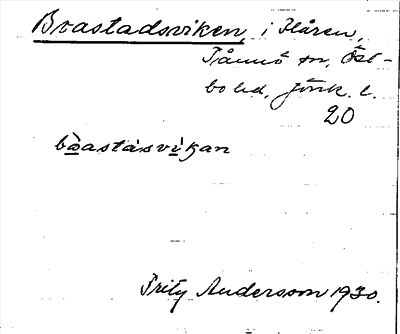 Brastadsviken, i Flåren,
Tånnö sn, Öst-
bo hd, Jönk. l.
20
bràastásvìkan
Fritz Andersson 1930.